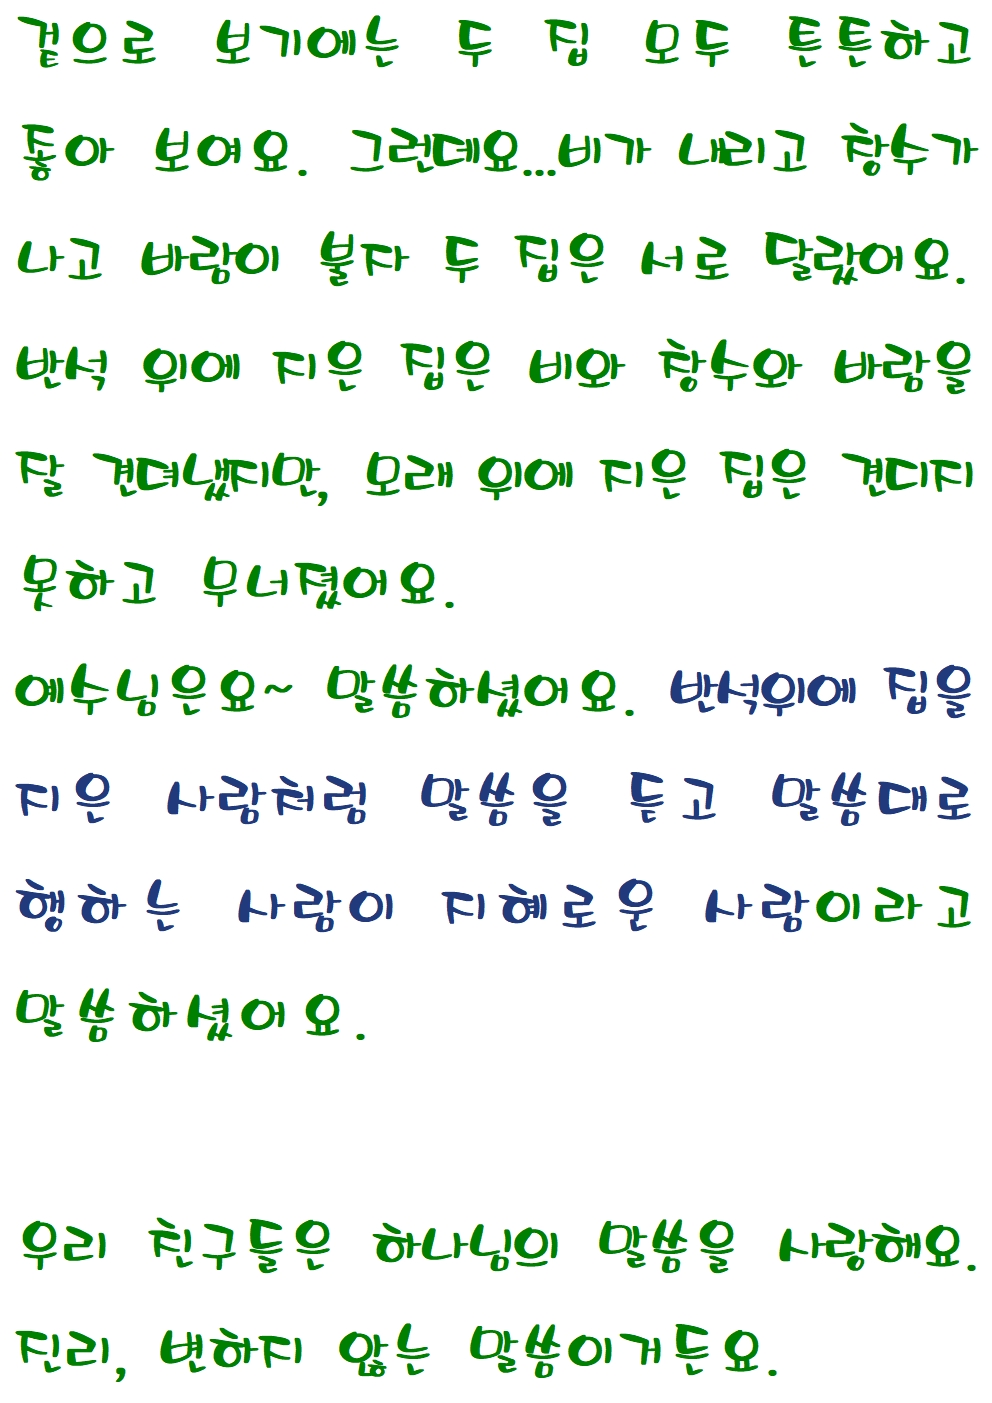 겉으로 보기에는 두 집 모두 튼튼하고
좋아 보여요. 그런데요...비가 내리고 창수가
나고 바람이 불자 두 집은 서로 달랐어요.
반석 위에 지은 집은 비와 창수와 바람을
잘 견뎌냈지만, 모래 위에 지은 집은 견디지
못하고 무너졌어요.
예수님은요~ 말씀하셨어요. 반석위에 집을
지은 사람처럼 말씀을 듣고 말씀대로
행하는 사람이 지혜로운 사람이라고
말씀하셨어요.
우리 친구들은 하나님의 말씀을 사랑해요.
진리, 변하지 않는 말씀이거든요.